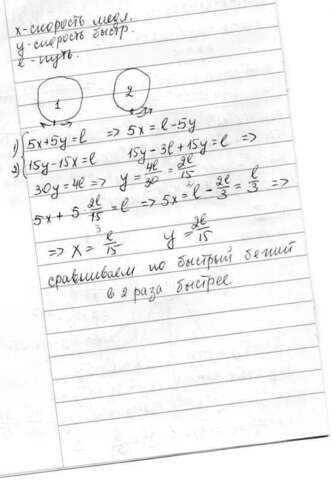 x-скорость медл.
y-скорость быстр.
l-путь.
1 2
1) { 5x+5y=l => 5x=l-5y
2) { 15y-15x=l 15y-3l+15y=l =>
30y=4l => y=4l/30=2l/15
5x+5 2l/15=l => 5x=l-2l/3=l/3 =>
=> x=l/15 y=2l/15
сравниваем
в 2 раза быстрее